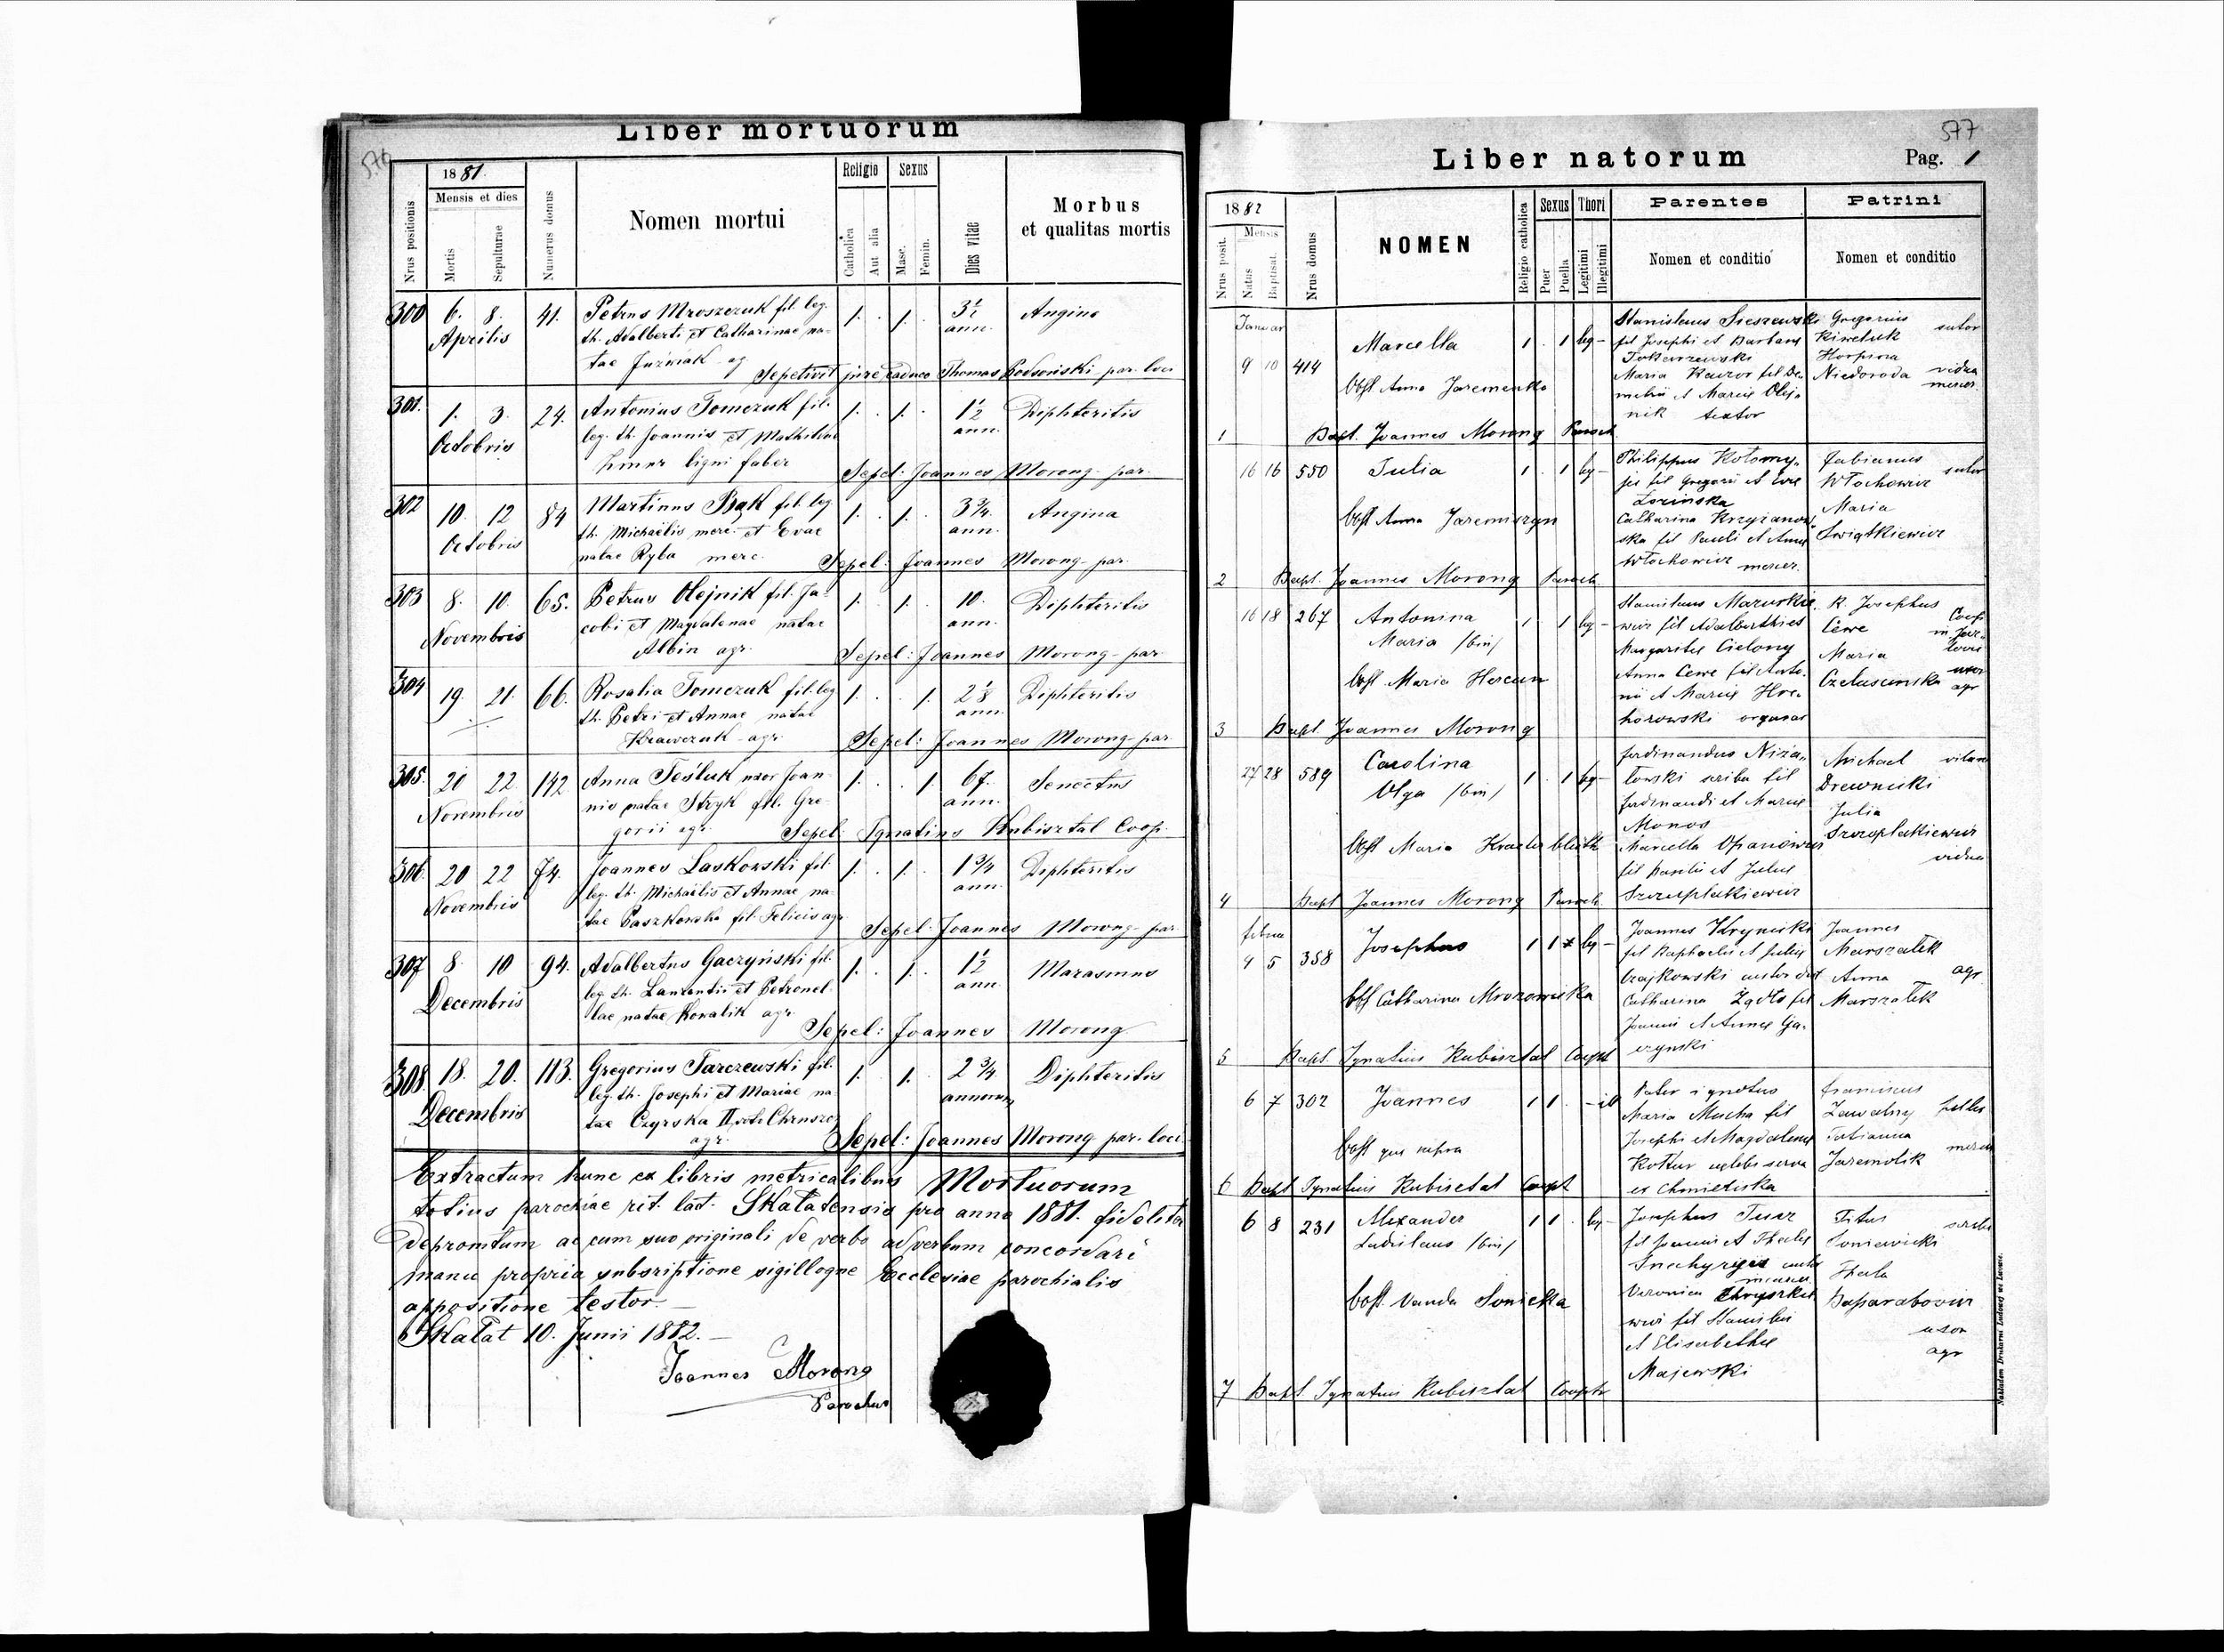 576
Liber mortuorum
Nrus positionis
1881.
Mensis et dies
Mortis
Sepulturae
Numerus domus
Nomen mortui
Religio
Catholica
Aut alia
Sexus
Masc.
Femin.
Dies vitae
Morbus
et qualitas mortis
300 6. 8. 41. Petrus Mroszczuk fil. leg. 1. . 1. . Angina
Aprilis th. Adalberti et Catharinae na- ann.
tae Juźwiak ag
Sepelivit jure caduco Thomas par. loci
301. 1. 3. 24. Antonius Tomczuk fil. 1. . 1. . 1 1/2 Diphteritis
Octobris leg. th. Joannis et ann.
ligni faber
Sepel: Joannes Morong par.
302 10. 12 84 Martinus Bąk fil. leg 1. . 1. . 3 3/4. Angina
Octobris th. Michaëlis merc. et Evae ann.
natae Ryba merc.
Sepel: Joannes Morong par.
303 8. 10. 65. Petrus Olejnik fil. Ja- 1. . 1. . 10. Diphteritis
Novembris cobi et Magdalenae natae ann.
Albin agr.
Sepel: Joannes Morong par.
304 19. 21. 66. Rosalia Tomczuk fil. leg 1. . . 1. 2 1/8 Diphteritis
th. Petri et Annae natae ann.
Krawczuk agr.
Sepel: Joannes Morong par.
305. 20 22. 142 Anna Teśluk uxor Joan- 1. . . 1. 67. Senectus
Novembris nis natae Stryk fil. Gre- ann.
gorii agr.
Sepel: Ignatius Kubisztal Coop.
306. 20 22 74. Joannes Laskowski fil. 1. . 1. . 1 3/4 Diphteritis
Novembris leg. th. Michaëlis et Annae na- ann.
tae Paszkowska fil. Felicis agr
Sepel: Joannes Morong par.
307 8. 10 94. Adalbertus Gaczyński fil. 1. . 1. . 1 1/2 Marasmus
Decembris leg. th. Laurentii et Petronel- ann.
lae natae Kowalik agr.
Sepel: Joannes Morong
308. 18. 20. 113. Gregorius Tarczewski fil. 1. . 1. . 2 3/4 Diphteritis
Decembris leg. th. Josephi et Mariae na- annorum
tae Czyrska II voto
agr.
Sepel: Joannes Morong par. loci
Extractum hunc ex libris metricalibus Mortuorum
totius parochiae rit. lat. Skalatensis pro anno 1881. fideliter
depromtum ac cum suo originali de verbo ad verbum concordari
manu propria subscriptione sigilloque Ecclesiae parochialis
appositione testor.
Skałat 10. Junii 1882.
Joannes Morong
Parochus
577
Liber natorum
Pag. 1
1882
Nrus posit.
Mensis
Natus
Baptisat.
Nrus domus
NOMEN
Religio catholica
Sexus
Puer
Puella
Thori
Legitimi
Illegitimi
Parentes
Nomen et conditio
Patrini
Nomen et conditio
Januar
9 10 414 Marcella 1 . 1 leg –
Stanislaus Sieszewski
fil Josephi et Barbara
Tokarzewski
Maria
nik textor
Gregorius sutor
Kiweluk
Horpina
Niedoroda vidua
mercen.
obst Anna Jaremenko
1 Bapt. Joannes Morong Paroch
16 16 550 Julia 1 . 1 leg –
fil Gregorii et Evae
Łozinska
Catharina Krzyżanow-
ska fil Pauli et Annae
Włochowicz mercen.
Fabianus sutor
Włochowicz
Maria
Świątkiewicz
obst Anna Jaremiszyn
2 Bapt. Joannes Morong Paroch.
16 18 267 Antonina 1 . 1 leg –
Maria /bin/
Stanislaus Mazurkie-
wicz fil Adalberthi et
Margaritae Cielony
Anna Cewe fil Anto-
nii et Mariae Hre-
horowski
R. Josephus Coop
Cewe
Maria
uxor
agr
obst Maria Hercun
3 Bapt Joannes Morong
27 28 589 Carolina 1 . 1 leg –
Olga /bin/
Ferdinandus Niza-
lowski scriba fil
Ferdinandi et Mariae
Monos
Marcella
fil Pauli et Juliae
Szczeplatkiewicz
Michael
Drewnicki
Julia
Szczeplatkiewicz
vidua
obst Maria
4 Bapt Joannes Morong Paroch.
Februa
4 5 358 Josephus 1 1 leg –
Joannes Krynicki
fil Raphaelis et Juliae
Czajkowski
Catharina Żądło fil
Joannis et Annae Ga-
czynski
Joannes
Marszałek
Anna agr
Marszałek
obst Catharina Mrozowicka
5 Bapt. Ignatius Kubisztal Coopt
6 7 302 Joannes 1 1 . – ill
Pater ignotus
Maria Mucha fil
Josephi et Magdalenae
serva
ex Chmieliska
Franciscus
Zawalny
Tatianna
Jaremolik
obst qui supra
6 Bapt Ignatius Kubisztal Coopt
6 8 231 Alexander 1 1 . leg –
Ladislaus /bin/
Josephus
fil Joannis et Theclae
Veronica
wicz fil Stanislai
et Elisabethae
Majewski
Titus
Thecla
uxor
agr
obst. Vanda Sonicka
7 Bapt. Ignatius Kubisztal Coopt
Nakładem Drukarni Ludowej we Lwowie.